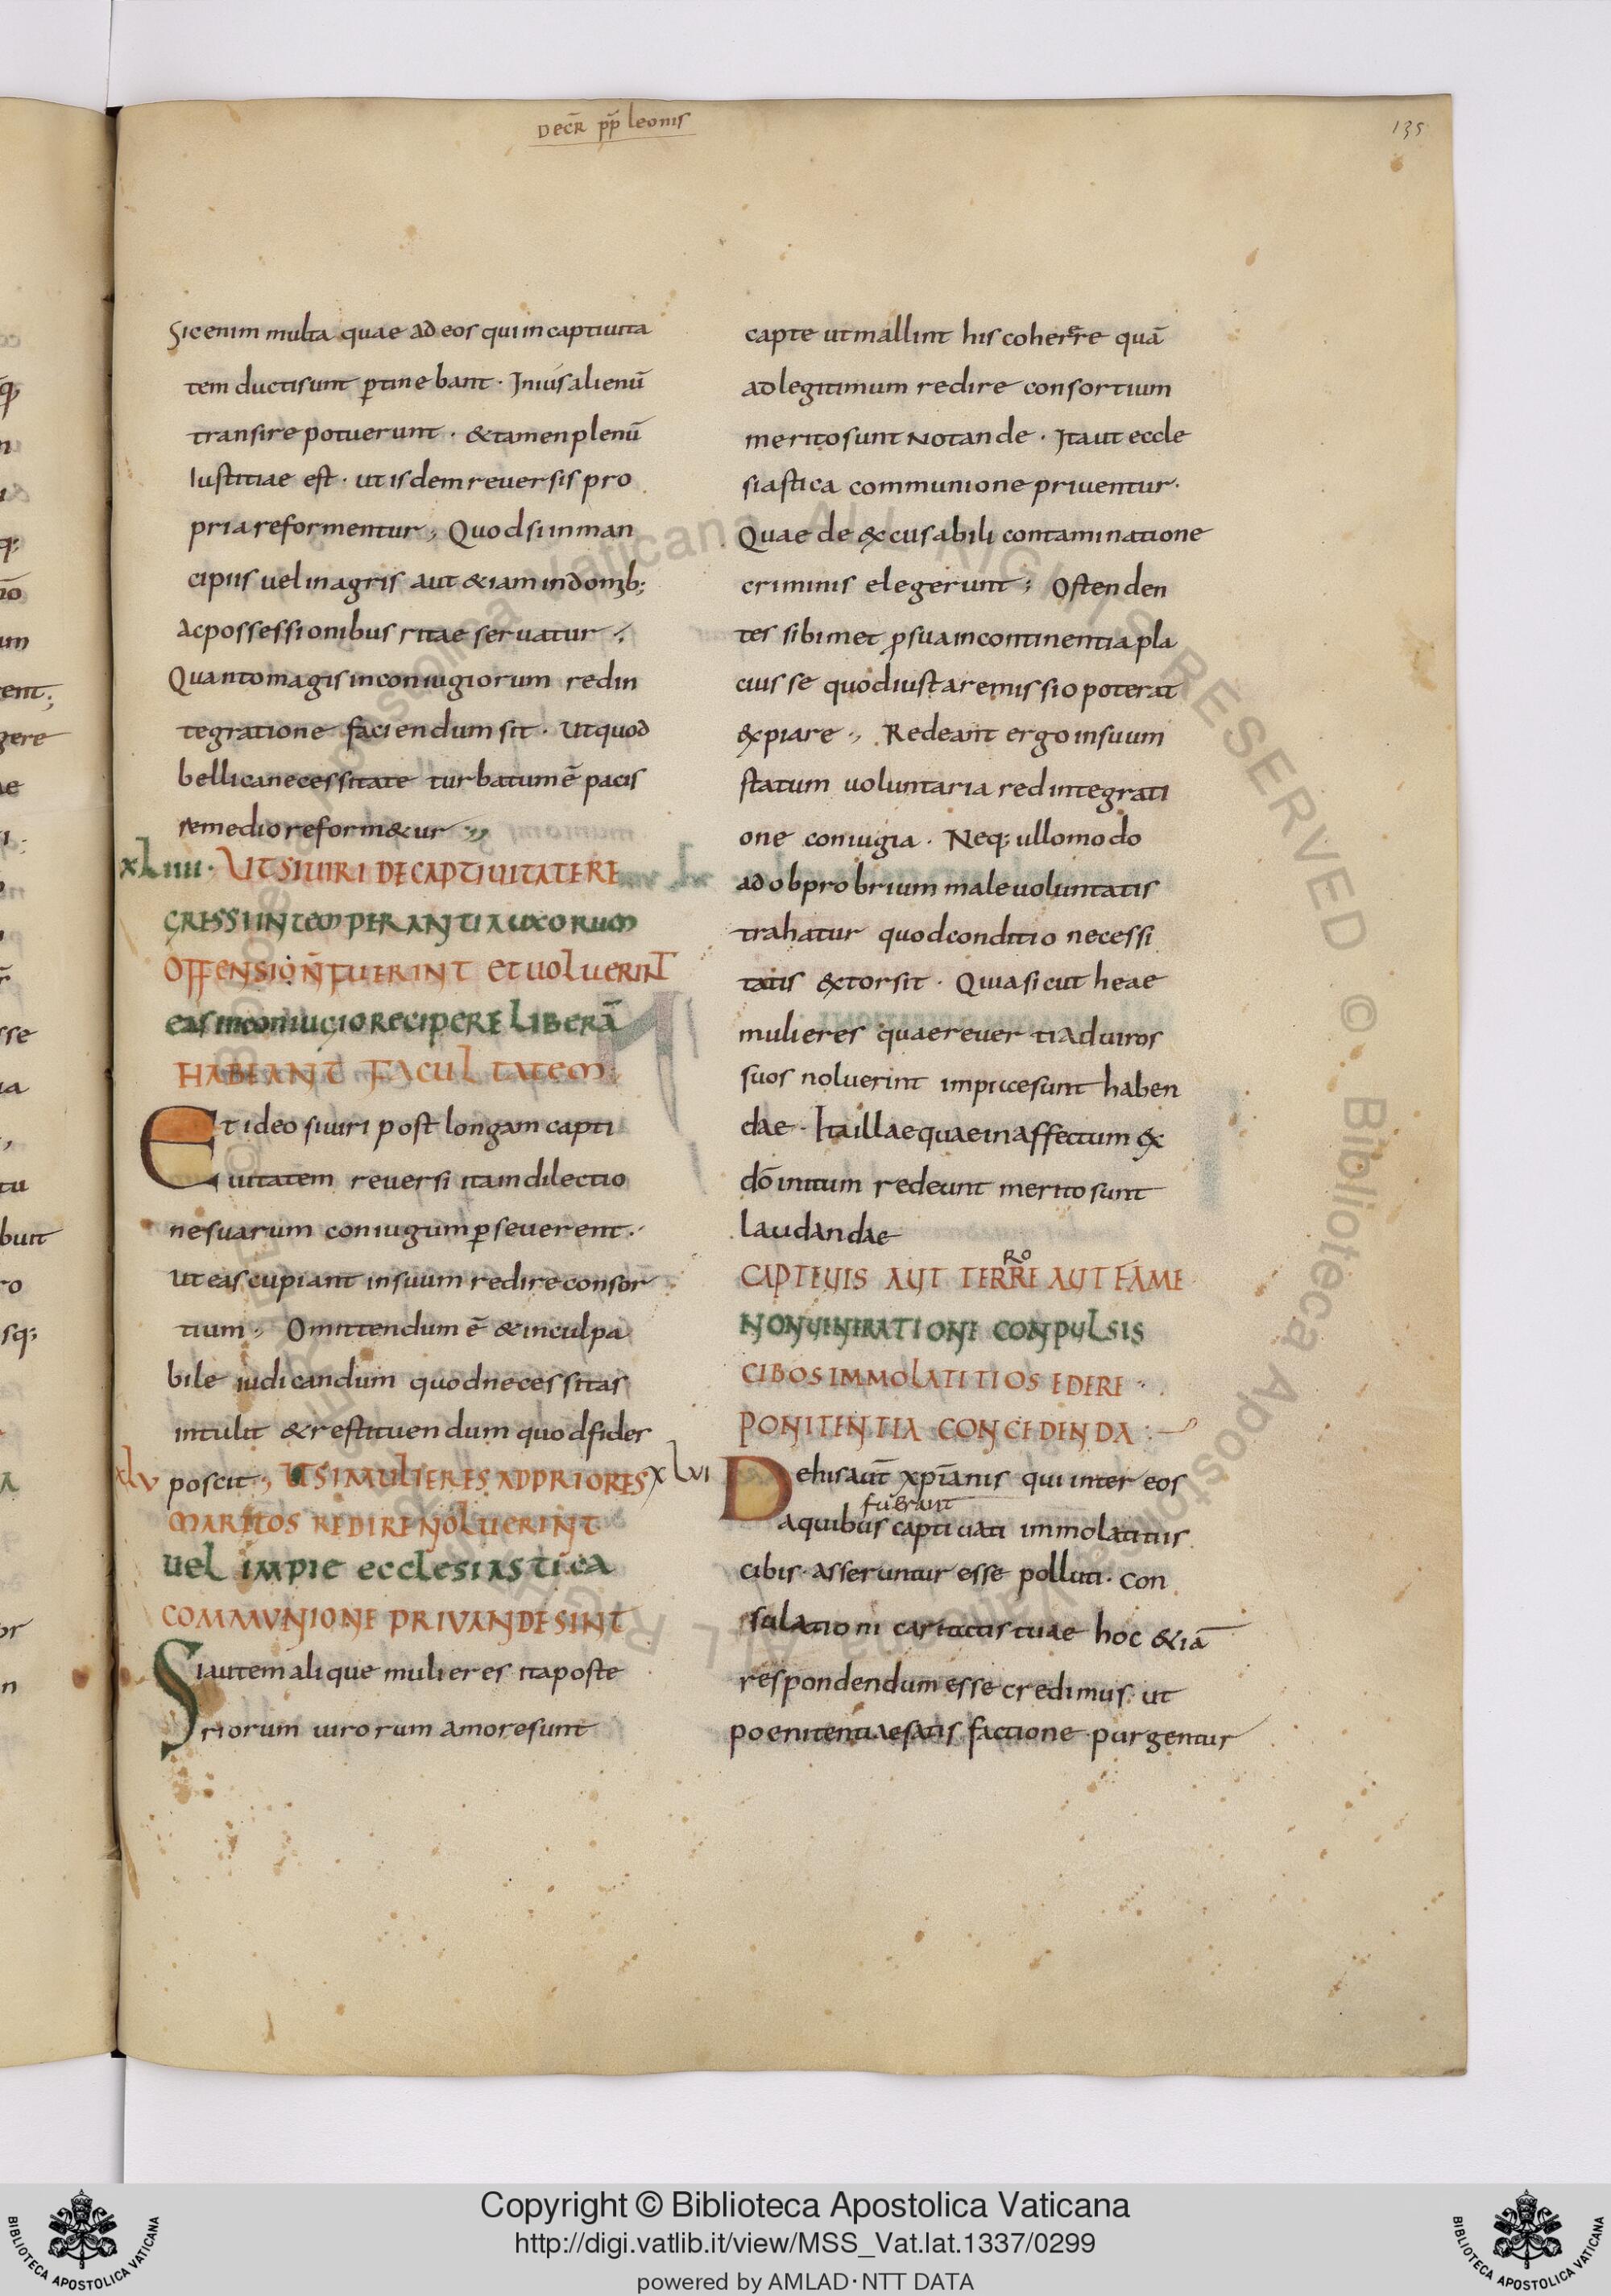 Decr̄ pp̄ leonis
135
Sicenim multa quae ad eos qui in captiuita
tem ductisunt ꝑtinebant · Iniusalienū
transire potuerunt · & tamen plenū
Iustitiae est · ut isdem reuersis pro
pria reformentur ; Quod si in man
cipiis uel in agris aut &iam in domib;
ac possessionibus ritae seruatur ;
Quanto magis in coniugiorum redin
tegratione faciendum sit · Ut quod
bellica necessitate turbatum ē pacis
remedio reform&ur ;
xLiiii · UT SI UIRI DE CAPTIUITATE RE
GRESSI INTEMPERANTIA UXORUM
OFFENSI Ō N̄ FUERINT ET UOLUERINT
eas in coniugio RECIPERE LIBERĀ
HABEANT FACULTATEM
Et ideo si uiri post longam capti
uitatem reuersi ita in dilectio
ne suarum coniugum ꝑseuerent ·
Ut eas cupiant in suum redire consor
tium ; Omittendum ē & inculpa
bile iudicandum quod necessitas
intulit & restituendum quod fides
xlv poscit ; UT SI MULIERES AD PRIORES
MARITOS REDIRE NOLUERINT
UEL IMPIE ECCLESIASTICA
COMMUNIONE PRIUANDE SINT
Si autem alique mulieres ita poste
riorum uirorum amore sunt
capte ut mallint his coherere quā
ad legitimum redire consortium
merito sunt Notande · Ita ut eccle
siastica communione priuentur ·
Quae de &cusabili contaminatione
criminis elegerunt ; Osten den
tes sibimet ꝓ sua incontinentia pla
cuisse quod iusta remissio poterat
&piare ; Redeant ergo in suum
statum uoluntaria redintegrati
one coniugia · Neq; ullomodo
ad obprobrium male uoluntatis
trahatur quod conditio necessi
tatis &torsit · Quia sicut heae
mulieres quae reuerti ad uiros
suos noluerint impiae sunt haben
dae · Ita illae quae in affectum &
dō initum redeunt merito sunt
laudandae
RO
CAPTEUIS AUT TERRE AUT FAME
NON UINERATIONE CONPULSIS
CIBOS IMMOLATITIOS EDERE ·
PONITENTIA CONCEDENDA :
xLvi De his aut̄ xp̄ianis qui inter eos
fuerant
a quibus captiuati immolatitiis
cibis · asseruntur esse polluti · Con
sulationi caritatis tuae hoc &iā
respondendum esse credimus · ut
poenitentiae satisfactione purgentur
Copyright © Biblioteca Apostolica Vaticana
http://digi.vatlib.it/view/MSS_Vat.lat.1337/0299
powered by AMLAD·NTT DATA